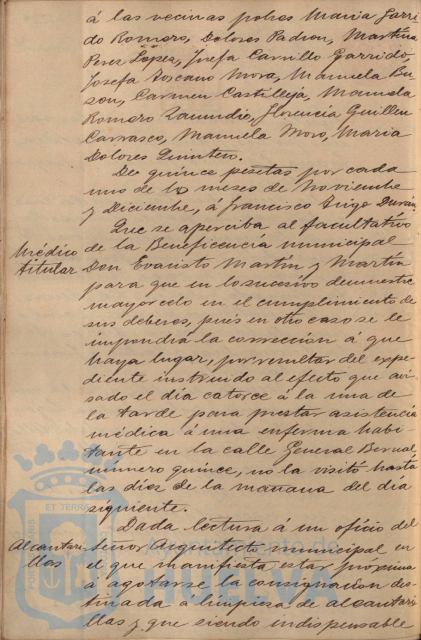 á las vecinas pobres Maria Garri
do Romero, Dolores Padron, Martina
Perez López, Josefa Carrillo Garrido,
Josefa Toscano Mora, Manuela Bu
zon, Carmen Castilleja, Manuela
Romero Florencia Guillen
Carrasco, Manuela Moro, Maria
Dolores Quintero.
De quince pesetas por cada
uno de lo meses de Noviembre
y Diciembre, á Francisco Trigo Duran.
Que se aperciba al facultativo
de la Beneficencia municipal
Médico
titular
Don Evaristo Martin y Martin
para que en lo sucesivo demuestre
mayor celo en el cumplimiento de
sus deberes, pues en otro caso se le
impondrá la corrección á que
haya lugar, por resultar del expe
diente instruido al efecto que avi
sado el dia catorce á la una de
la tarde para prestar asistencia
médica á una enferma habi
tante en la calle General Bernal
numero quince, no la visitó hasta
las diez de la mañana del dia
siguiente.
Dada lectura á un oficio del
Alcantari
llas
Señor Arquitecto municipal en
el que manifiesta estar proxima
á agotarse la consignacion des
tinada á limpieza de alcantari
llas y que siendo indispensable
PORTUS MARIS
ET TERRÆ
Ayuntamiento de
HUELVA